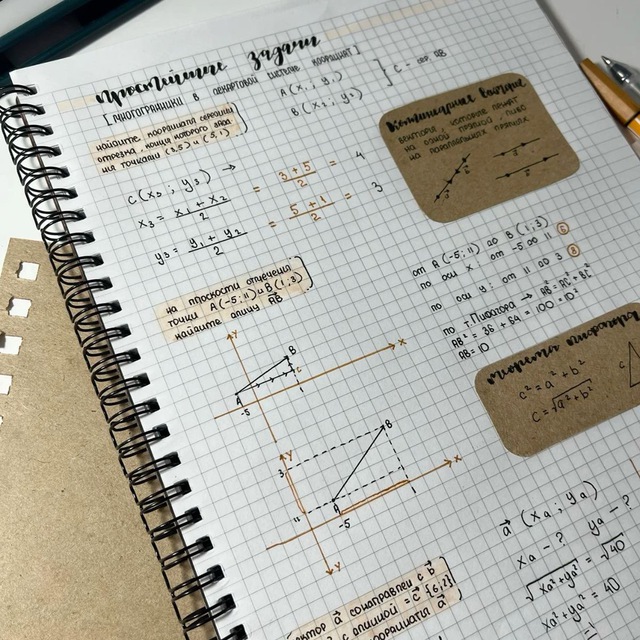 простейшие задачи
[многогранники в декартовой системе координат]
A(x₁; y₁)
B(x₂; y₂)
] C = сер. AB
найдите координаты середины
отрезка, концы которого даны
на точками (3,5) и (5,1)
C(x₃; y₃) →
x₃ = x₁ + x₂ / 2 = 3+5 / 2 = 4
y₃ = y₁ + y₂ / 2 = 5+1 / 2 = 3
Коллинеарные векторы
векторы, которые лежат
на одной прямой, либо
на параллельных прямых
на плоскости отмечены
точки A(-5;11) и B(1;3)
найдите длину AB
от A(-5;11) до B(1;3)
по оси x: от -5 до 1 6
по оси y: от 11 до 3 8
по т. Пифагора → AB² = AC² + BC²
AB² = 36 + 64 = 100 = 10²
AB = 10
теорема пифагора
c² = a² + b²
c = √a² + b²
c
y
B
c
x
A
-5
1
y
B
3
x
A
11
-5
1
y
a (xₐ; yₐ)
xₐ - ? yₐ - ?
√xₐ² + yₐ² = √40
xₐ² + yₐ² = 40
вектор a сонаправлен с b
с длиной = c [6;2]
координаты a